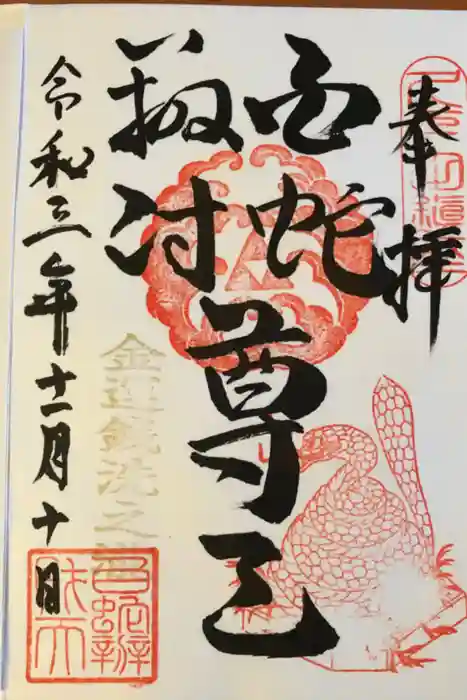 奉拝
白蛇
辨財
尊天
令和三年十一月十日
金運銭洗之
白蛇辨
財天